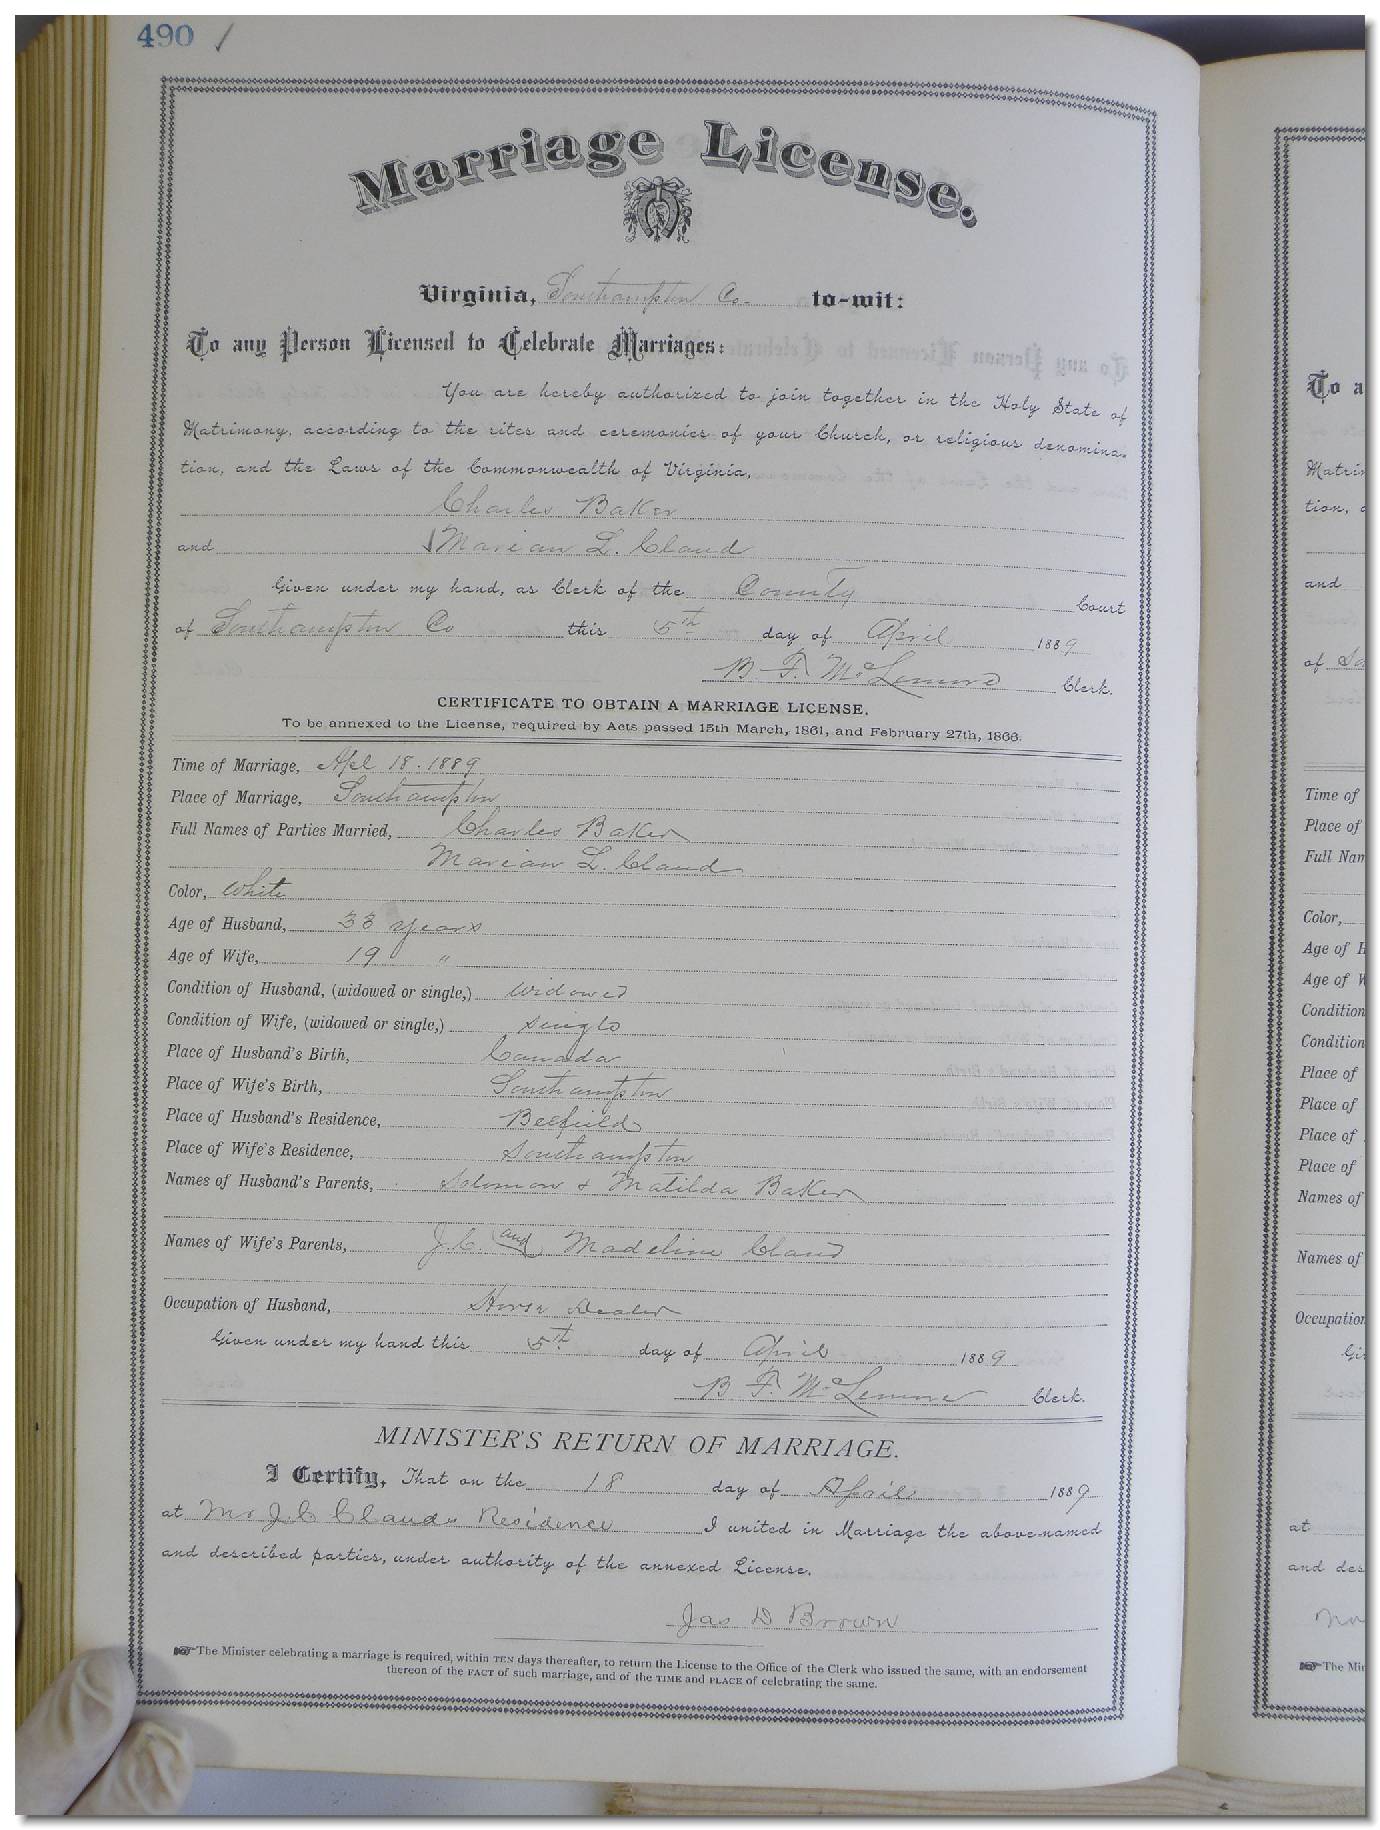 490 /
Marriage License.
Virginia, Southampton Co. to-wit:
To any Person Licensed to Celebrate Marriages:
You are hereby authorized to join together in the Holy State of
Matrimony, according to the rites and ceremonies of your Church, or religious denomina-
tion, and the Laws of the Commonwealth of Virginia,
Charles Baker
and Marian L. Claud
Given under my hand, as Clerk of the County Court
of Southampton Co this 5th day of April 1889
B. F. McLemore Clerk.
CERTIFICATE TO OBTAIN A MARRIAGE LICENSE.
To be annexed to the License, required by Acts passed 15th March, 1861, and February 27th, 1866.
Time of Marriage, Apl 18. 1889
Place of Marriage, Southampton
Full Names of Parties Married, Charles Baker
Marian L. Claud
Color, White
Age of Husband, 33 years
Age of Wife, 19 "
Condition of Husband, (widowed or single,) widowed
Condition of Wife, (widowed or single,) single
Place of Husband's Birth, Canada
Place of Wife's Birth, Southampton
Place of Husband's Residence,
Place of Wife's Residence, Southampton
Names of Husband's Parents, Solomon & Matilda Baker
Names of Wife's Parents, J. C. and Madeline Claud
Occupation of Husband, Horse Dealer
Given under my hand this 5th day of April 1889
B. F. McLemore Clerk.
MINISTER'S RETURN OF MARRIAGE.
I Certify, That on the 18 day of April 1889
at Mr J. C Clauds Residence I united in Marriage the above-named
and described parties, under authority of the annexed License.
Jas D Brown
The Minister celebrating a marriage is required, within TEN days thereafter, to return the License to the Office of the Clerk who issued the same, with an endorsement
thereon of the FACT of such marriage, and of the TIME and PLACE of celebrating the same.
To a
Matrim
tion,
and
of
Time of
Place of
Full Nam
Color,
Age of H
Age of W
Condition
Condition
Place of
Place of
Place of
Place of
Names of
Names of
Occupation
Gi
at
and des
The Mi